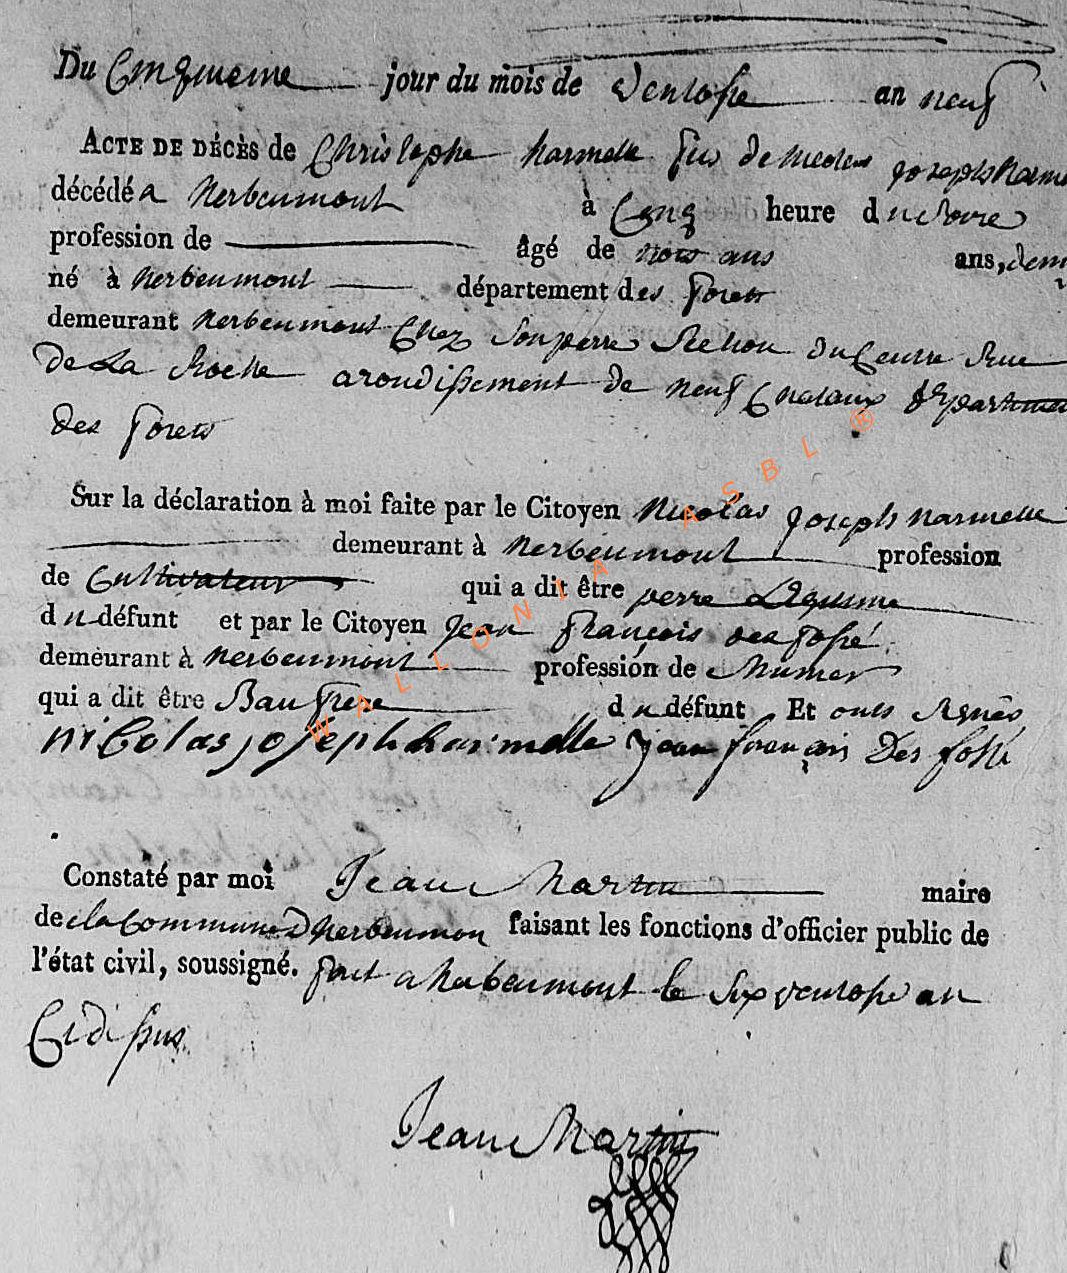 Du Cinquieme jour du mois de Ventosse an neuf
ACTE DE DÉCÈS de Christophe harmelle fils de nicolas joseph harme
décédé a herbeumont à Cinq heure du soire
profession de âgé de trois ans ans, dem
né à herbeumont département des foretz
demeurant herbeumont Chez son perre Section du Centre Rue
de La Roche arondissement de neuf Chataux departement
des foretz
Sur la déclaration à moi faite par le Citoyen nicolas joseph harmelle
demeurant à herbeumont profession
de Cultivateur qui a dit être perre
du défunt et par le Citoyen jean françois des fossé
demeurant à herbeumont profession de
qui a dit être Baufrere du défunt Et onts signés
nicolas joseph harmelle jean françois Des fossé
Constaté par moi Jean Martin maire
de la Commune D herbeumon faisant les fonctions d'officier public de
l'état civil, soussigné. fait a habeumont le six ventosse an
Cidissus
Jean Martin
WALLONIA ASBL ®